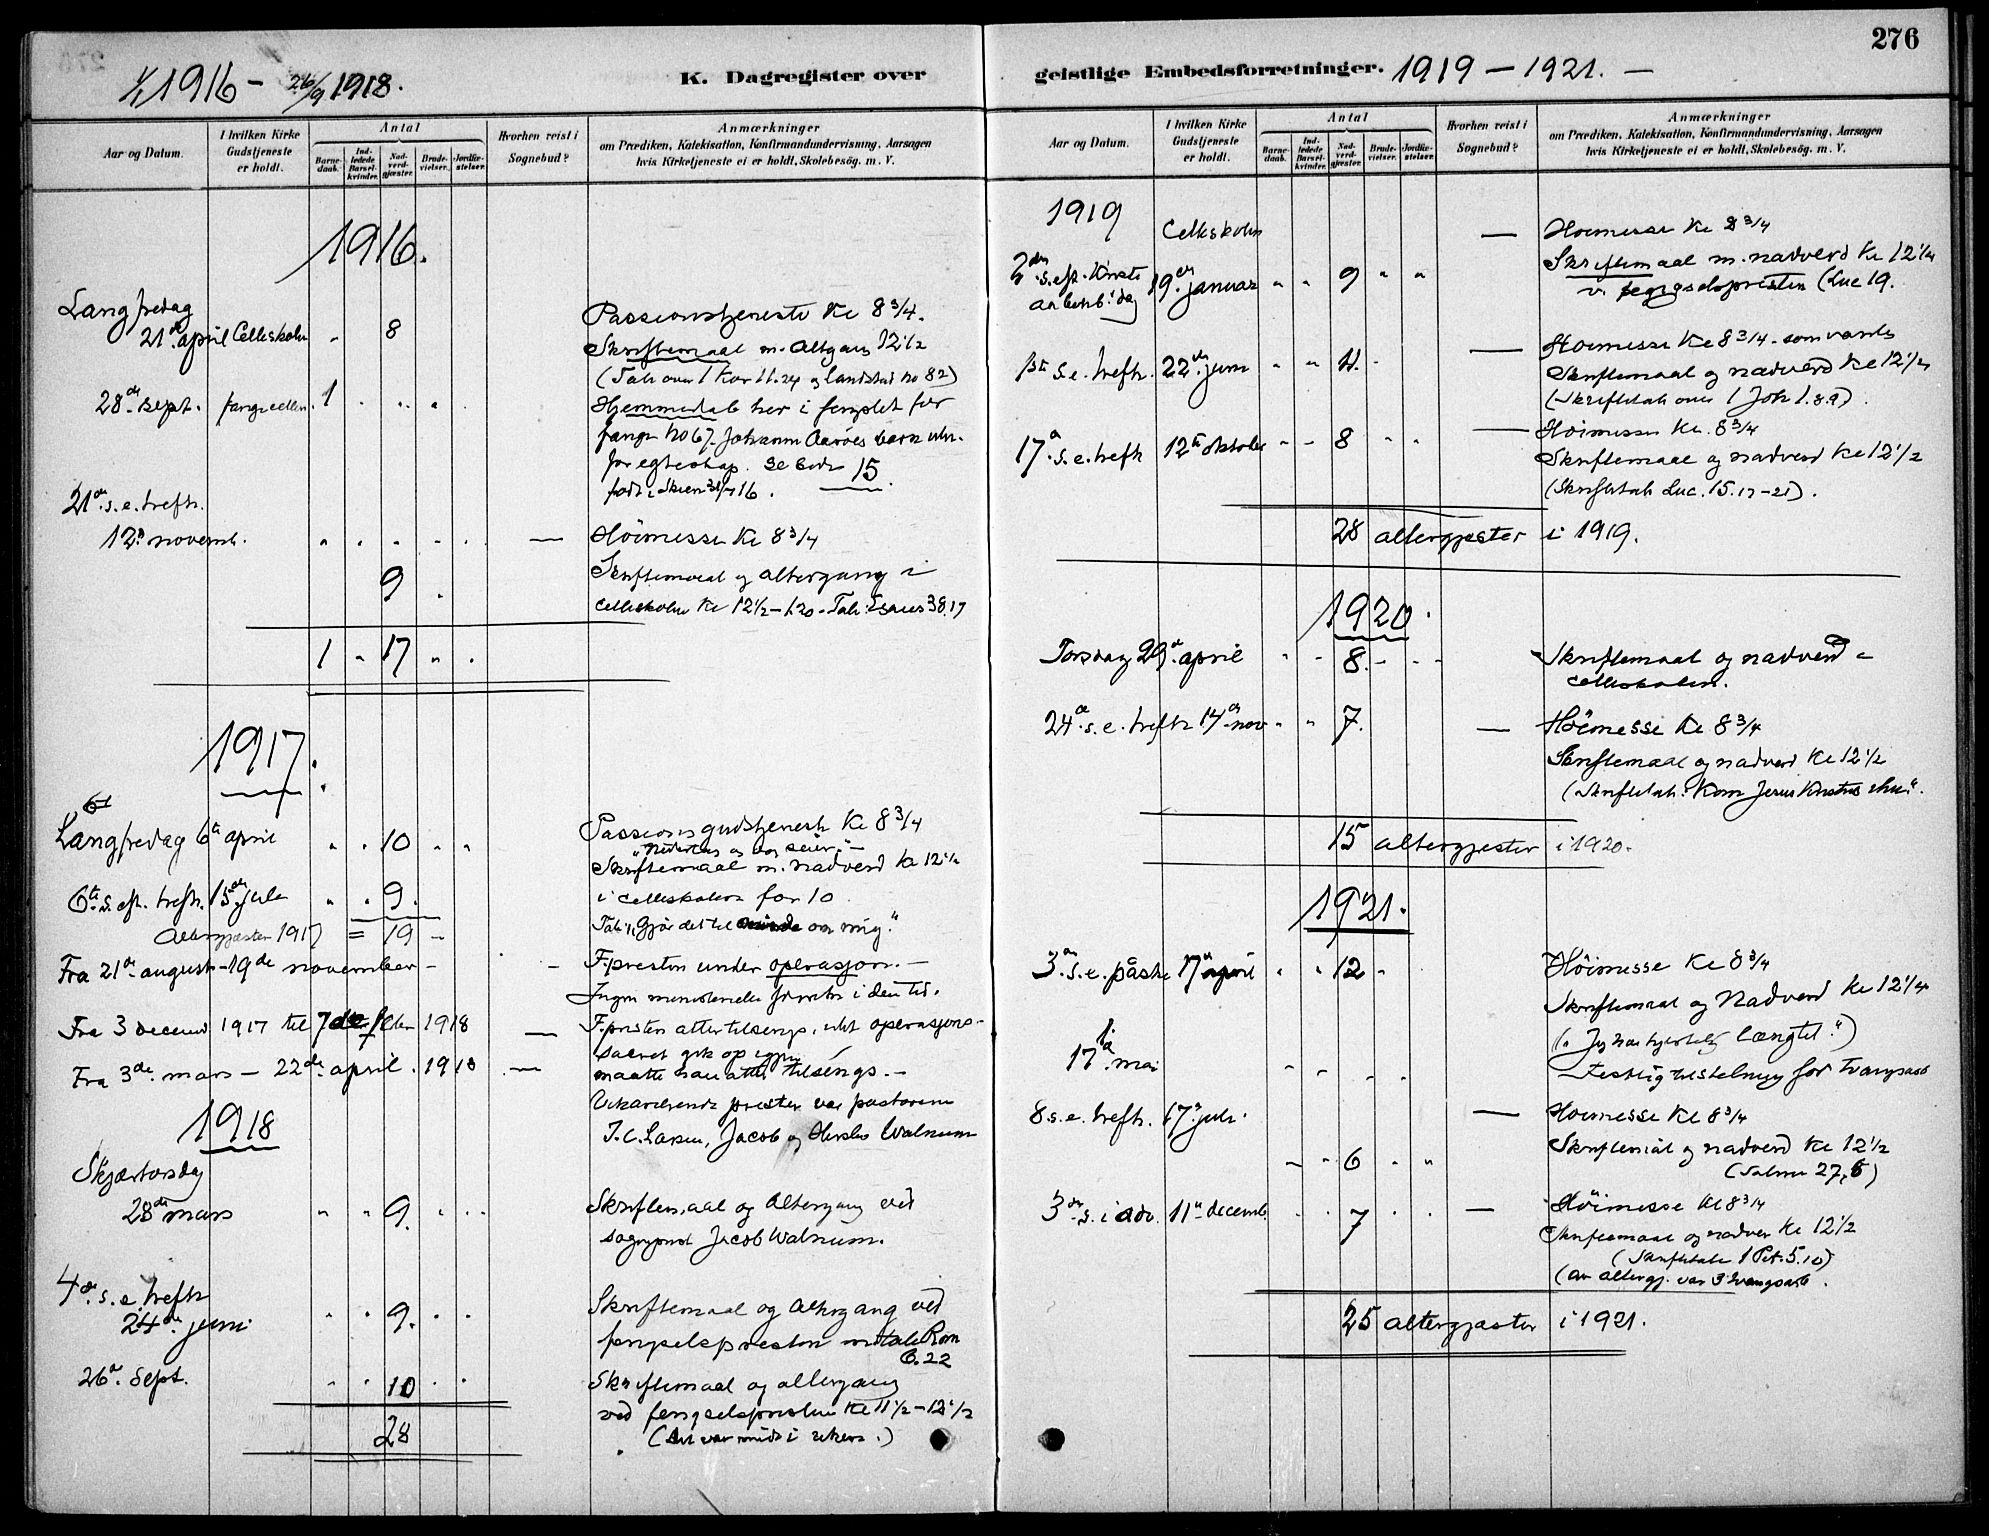 276
1/1 1916 – 26/9 1918.
K. Dagregister over
Aar og Datum.
I hvilken Kirke Gudstjeneste er holdt.
Antal
Barne-daab.
Ind-ledede Barsel-kvinder.
Nad-verd-gjæster.
Brude-vielser.
Jordfæ-stelser.
Hvorhen reist i Sognebud?
Anmærkninger
om Prædiken, Katekisation, Konfirmandundervisning, Aarsagen
hvis Kirketjeneste ei er holdt, Skolebesög, m. V.
1916.
Langfredag
21de april Celleskolen „ 8 Passionstjeneste Kl 8 3/4.
Skriftemaal m. Altgang 12 1/2
(Tale over 1 Kor 11.24 og Landstad no 82)
28de sept. fangecellen. 1 Hjemmedaab her i fengslet for
fange no 67. Johanne Aaröes barn uten-
for egteskap. Se 15.
født i Skien 16.
21de s. e. trefh.
12te novemb. – Höimesse Kl 8 3/4
9 Skriftemaal og altergang i
celleskolen Kl 12 1/2 – 1.20. Tale: Esaias 38.17
1 „ 17 „ „
1917.
Langfredag 6te april „ „ 10 „ „ Passionsgudstjeneste Kl 8 3/4
og vor seier –
Skriftemaal m. nadverd Kl 12 1/2
6te s. eft. trefh. 15de juli „ „ 9. i celleskolen for 10
Altergjester 1917 = 19 – Tale: „Gjör det til minde om mig."
Fra 21de august – 19de november – – F.presten under operasjon. –
Ingen ministerielle i den tid.
Fra 3 decemb 1917 til 7de febr 1918 – F.presten atter tilsengs, idet operasjons-
saaret gik op igjen
Fra 3de mars – 22de april. 1918 . – maatte atter tilsengs. –
Vikarierende prester var pastorene
1918 J. C. Larsen, Jacob og Walnum
Skjærtorsdag
28de mars „ „ 9. „ „ Skriftemaal og Altergang ved
sogneprest Jacob Walnum.
4de s. e. trefh
24de juni „ „ 9. „ „ Skriftemaal og Altergang ved
fengselspresten m tale Rom
6.22
26de sept. „ „ 10 „ „ Skriftemaal og altergang
ved fengselspresten Kl 11 1/2 – 12 1/2
28 (Det var midt i uken.)
geistlige Embedsforretninger. 1919 – 1921. –
Aar og Datum.
I hvilken Kirke Gudstjeneste er holdt.
Antal
Barne-daab.
Ind-ledede Barsel-kvinder.
Nad-verd-gjæster.
Brude-vielser.
Jordfæ-stelser.
Hvorhen reist i Sognebud?
Anmærkninger
om Prædiken, Katekisation, Konfirmandundervisning, Aarsagen
hvis Kirketjeneste ei er holdt, Skolebesög, m. V.
1919
Celleskolen – Höimesse Kl 8 3/4
2den s. eft. Kristi 19de januar „ „ 9 „ „ Skriftemaal m. nadverd Kl 12 1/4
aabenb. dag v. fengselspresten (Luc 19.
1ste s. e. trefh. 22de juni „ „ 4. – – Höimesse Kl 8 3/4 – som vanlig
Skriftemaal og nadverd Kl 12 1/2
(Skriftetale over 1 Joh 1.8.9).
17de s. e. trefh 12te oktober – – 8 „ „ – Höimesse Kl. 8 3/4
Skriftemaal og nadverd Kl 12 1/2
(Skriftetale Luc. 15.17–21).
28 altergjester i 1919.
1920.
Torsdag 29de april „ – 8. – – – Skriftemaal og nadverd i
celleskolen.
24de s. e. trefh 14de nov „ „ 7. – Höimesse Kl 8 3/4
Skriftemaal og nadverd Kl 12 1/2
(Skriftetale: Kom Jesus Kristus ihu".
15 altergjester i 1920.
1921.
3de s. e. påske 17de april „ „ 12 – Höimesse Kl 8 3/4
Skriftemaal og Nadverd Kl 12 1/4
(„Jeg har hjertelig længtet")
17de mai – Festlig tilstelning for tvangsarb
8 s. e. trefh. 17de juli. – Höimesse Kl 8 3/4
„ „ 6 „ „ Skriftemål og nadverd Kl 12 1/2
(Salme 27,8)
3de s. i adv. 11te decemb. „ „ 7 „ „ – Höimesse Kl 8 3/4
Skriftemaal og nadver Kl 12 1/2
(Skriftetale 1 Pet. 5.10)
(av altergj. var 3 tvangsarb.
25 altergjester i 1921.